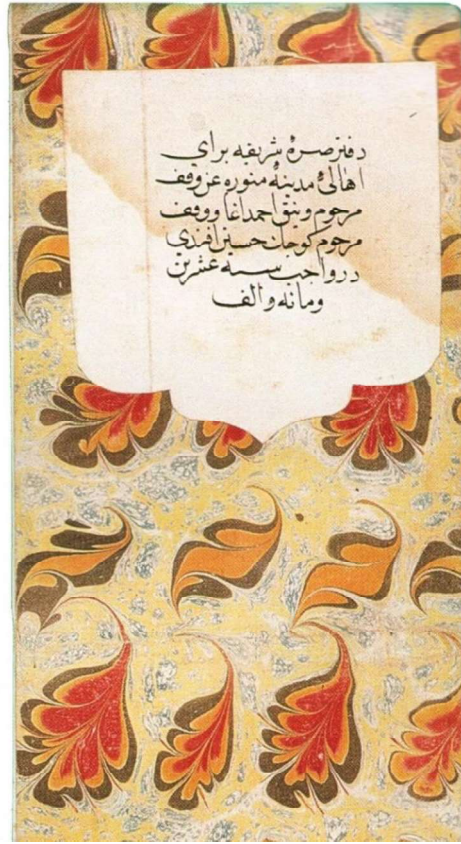 دفتر صرهٔ شریفه برای
اهالیٔ مدینهٔ منوره عن وقف
مرحوم احمد اغا ووقف
مرحوم کوجك حسین افندی
در واجب سنه عشرین
ومائه والف